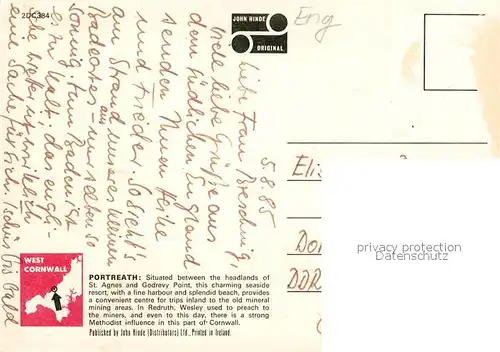 2DC384
JOHN HINDE
ORIGINAL
Eng
5.8.85
Liebe Frau
viele liebe Grüße aus
dem südlichen England
senden Ihnen Heike
und Frieder. So sieht's
am Strand aus unseres kleinen
Badeortes – nur ebenso
sonnig. Zum Baden ist
es zu kalt, das engli-
sche Wetter ist wirklich
eine Sache für sich! Tschüs bis bald
DDR
privacy protection
Datenschutz
WEST
CORNWALL
PORTREATH: Situated between the headlands of
St. Agnes and Godrevy Point, this charming seaside
resort, with a fine harbour and splendid beach, provides
a convenient centre for trips inland to the old mineral
mining areas. In Redruth, Wesley used to preach to
the miners, and even to this day, there is a strong
Methodist influence in this part of Cornwall.
Published by John Hinde (Distributors) Ltd., Printed in Ireland.